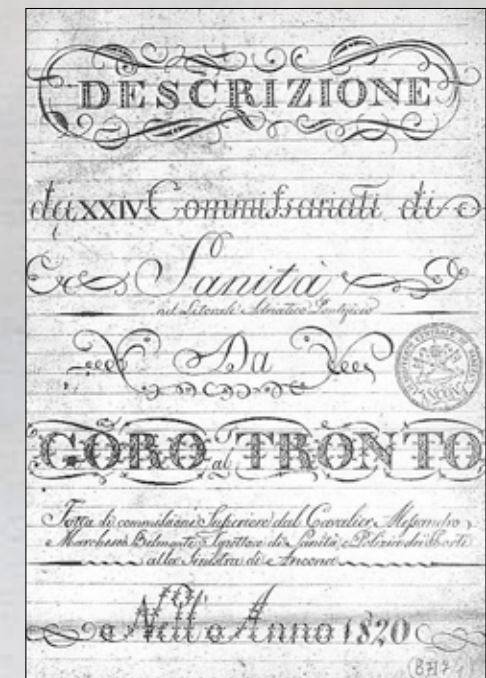 DESCRIZIONE
dei XXIV Commissariati di
Sanità
nel Litorale Adriatico Pontificio
Da
GORO al TRONTO
Fatta di commissione Superiore dal Cavalier Alessandro
Marchese Belmonte Ispettore di Sanità, e Polizia dei Porti
alla Sinistra di Ancona
Nell'Anno 1820
(B717